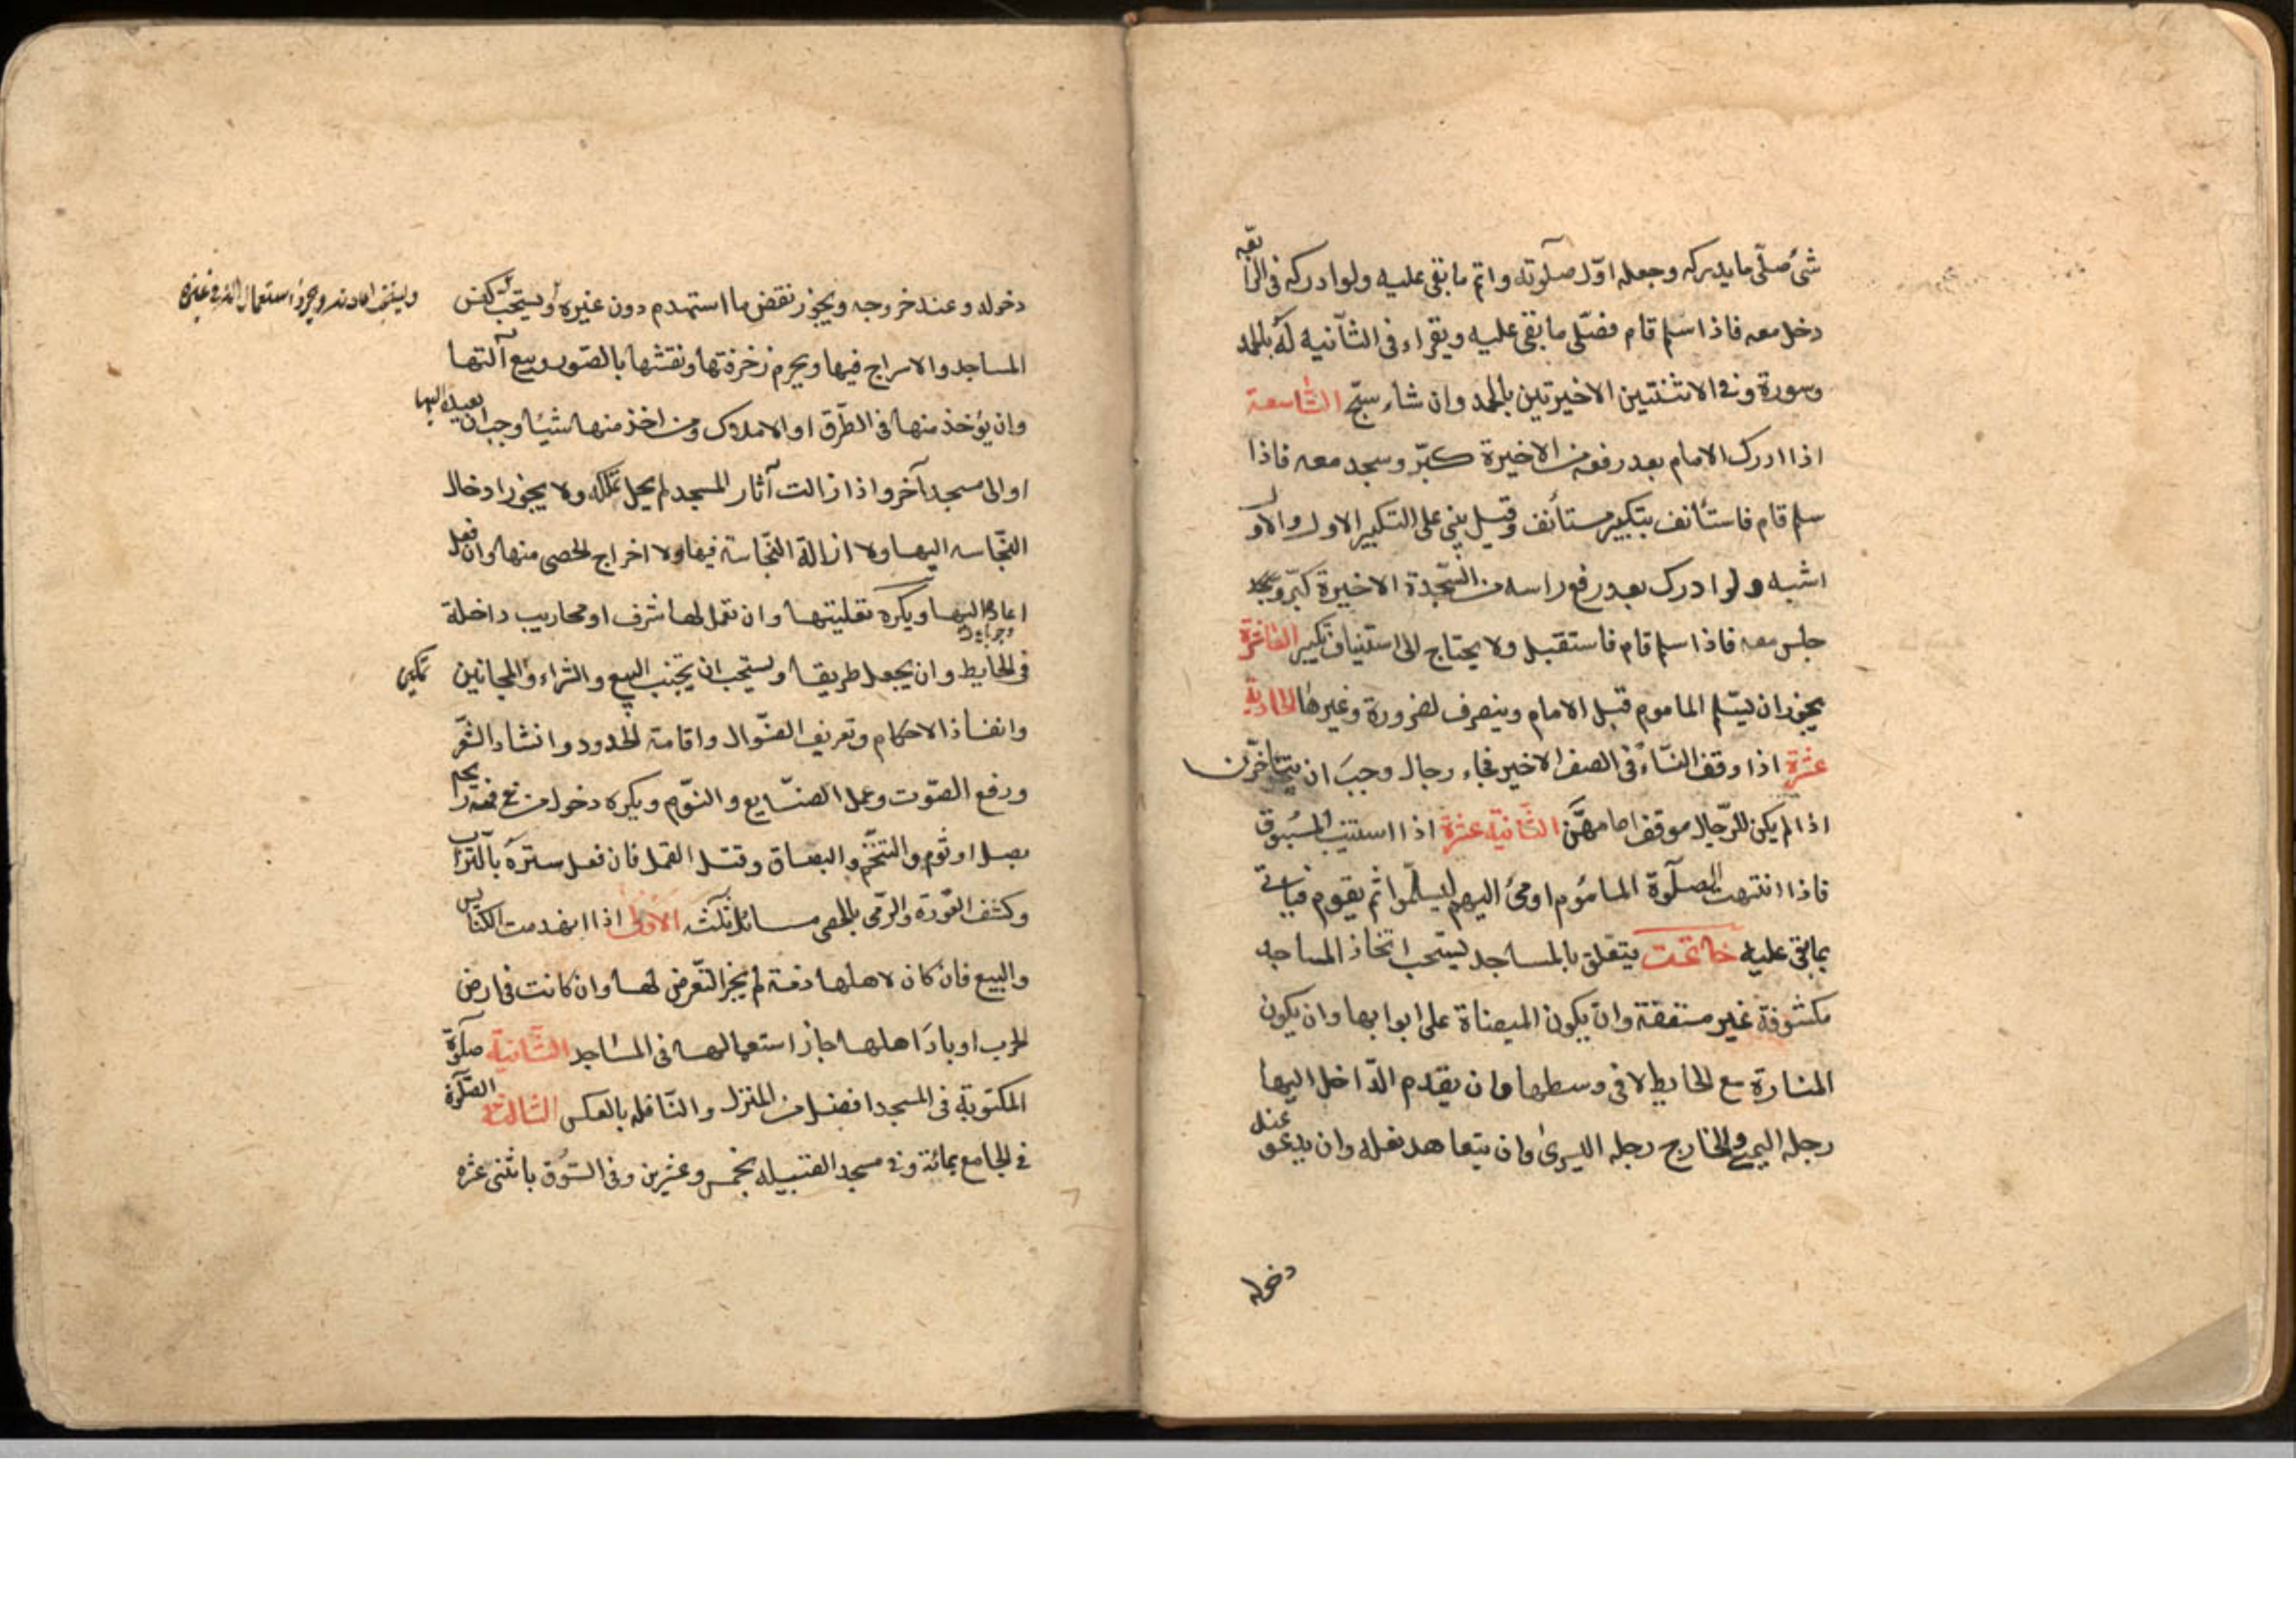 شئ صلّى ما يدركه وجعله اوّل صلوته واتم ما بقى عليه ولو ادركه فى الرابعة
دخل معه فاذا سلم قام فصلّى ما بقى عليه ويقراء فى الثانيه له بالحمد
وسورة وفى الاثنتين الاخيرتين بالحمد وان شاء سبّح التاسعة
اذا ادرك الامام بعد رفعه من الاخيرة كبّر وسجد معه فاذا
سلم قام فاستأنف بتكبير مستأنف وقيل يبنى على التكبير الاول والاول
اشبه ولو ادرك بعد رفع راسه من السّجدة الاخيرة كبّر و
جلس معه فاذا سلم قام فاستقبل ولا يحتاج الى استيناف تكبير العاشرة
يجوز ان يسلّم الماموم قبل الامام وينصرف لضرورة وغيرها الحادية
عشرة اذا وقف النساء فى الصف الاخير فجاء رجال وجب ان يتأخرن
اذا لم يكن للرّجال موقف امامهنّ الثانية عشرة اذا استنيب المسبوق
فاذا انتهت صلوة الماموم اومئ اليهم ليسلّموا ثم يقوم فياتى
بما بقى عليه خاتمت يتعلق بالمساجد يستحب اتخاذ المساجد
مكشوفة غير مسقفة وان يكون الميضاة على ابوابها وان يكون
المنارة مع الحايط لا فى وسطها وان يقدم الدّاخل اليها
رجله اليمنى والخارج رجله اليسرى وان يتعاهد نعله وان يدعو عند
دخوله
دخوله وعند خروجه ويجوز نقض ما استهدم دون غيره ويستحب كنس
ويستحب اعادته ويجوز استعمال الته فى غيره
المساجد والاسراج فيها ويحرم زخرفتها ونقشها بالصّور وبيع آلتها
وان يؤخذ منها فى الطّرق او الاملاك ومن اخذ منها شيئا وجب ان يعيده اليها
او الى مسجد آخر واذا زالت آثار المسجد لم يحل تملكه ولا يجوز ادخال
النّجاسه اليها ولا ازالة النّجاسة فيها ولا اخراج الحصى منها وان فعل
اعاده اليها ويكره تعليتها وان تعمل لها شرف او محاريب داخلة
فى الحايط وان يجعل طريقا ويستحب ان يتجنب البيع والشراء والمجانين
تمكين
وانفاذ الاحكام وتعريف الضّوال واقامة الحدود وانشاد الشّعر
ورفع الصّوت وعمل الصنّايع والنّوم ويكره دخول من فى فمه رايحة
بصل او ثوم والتنخّم والبصاق وقتل القمل فان فعل ستره بالتّراب
وكشف العورة والرّمى بالحصى مسائل ثلث الاولى اذا انهدمت الكنايس
والبيع فان كان لاهلها ذمة لم يجز التّعرض لها وان كانت فى ارض
الحرب او باد اهلها جاز استعمالها فى المساجد الثّانية صلوة
المكتوبة فى المسجد افضل من المنزل والنّافله بالعكس الثالثة الصّلوة
فى الجامع بمائة وفى مسجد القبيله بخمس وعشرين وفى السّوق باثنى عشره